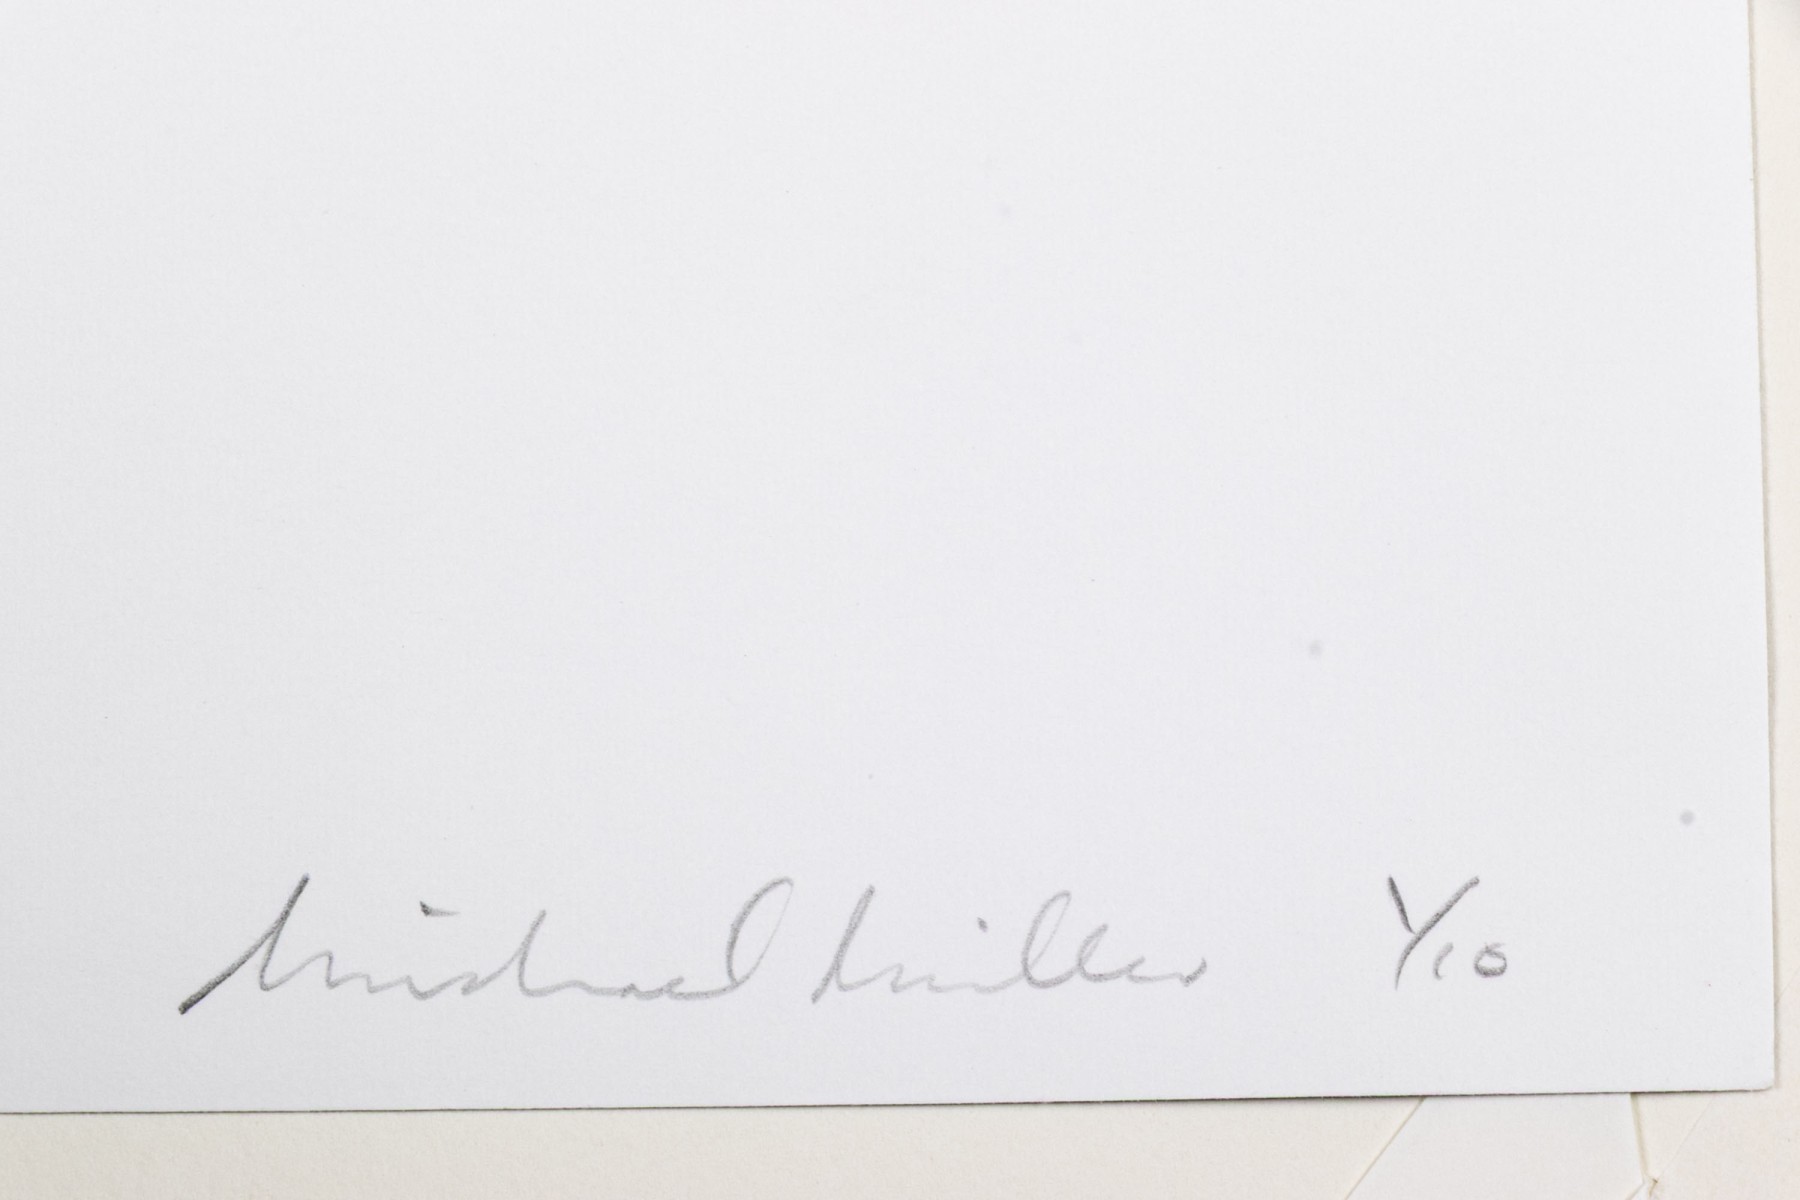 Michael Miller 1/10